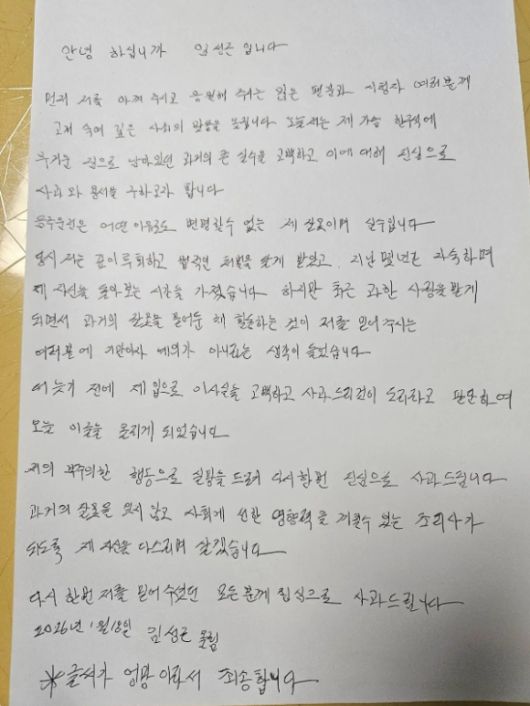 안녕 하십니까 임성근 입니다
먼저 저를 아껴 주시고 응원해 주시는 많은 팬분과 시청자 여러분께
고개 숙여 깊은 사죄의 말씀을 드립니다 오늘 저는 제 가슴 한구석에
무거운 짐으로 남아있던 과거의 큰 실수를 고백하고 이에 대해 진심으로
사과와 용서를 구하고자 합니다
음주운전은 어떤 이유로도 변명할수 없는 제 잘못이며 실수입니다
당시 저는 깊이 후회하고 법적인 처벌을 달게 받았고, 지난 몇년간 자숙하며
제 자신을 돌아보는 시간을 가졌습니다 하지만 최근 과한 사랑을 받게
되면서 과거의 잘못을 묻어둔 채 활동하는 것이 저를 믿어주시는
여러분에 기만이자 예의가 아니라는 생각이 들었습니다
더 늦기 전에 제 입으로 이사실을 고백하고 사과드리것이 도리라고 판단하여
오늘 이글을 올리게 되었습니다
저의 부주의한 행동으로 실망을 드려 다시한번 진심으로 사과드립니다
과거의 잘못을 잊지 않고 사회에 선한 영향력을 끼칠수 있는 조리사가
되도록 제 자신을 다스리며 살겠습니다
다시 한번 저를 믿어 주셨던 모든 분께 진심으로 사과드립니다
2026년 1월18일 임성근 올림
※글씨가 엉망 이라서 죄송합니다